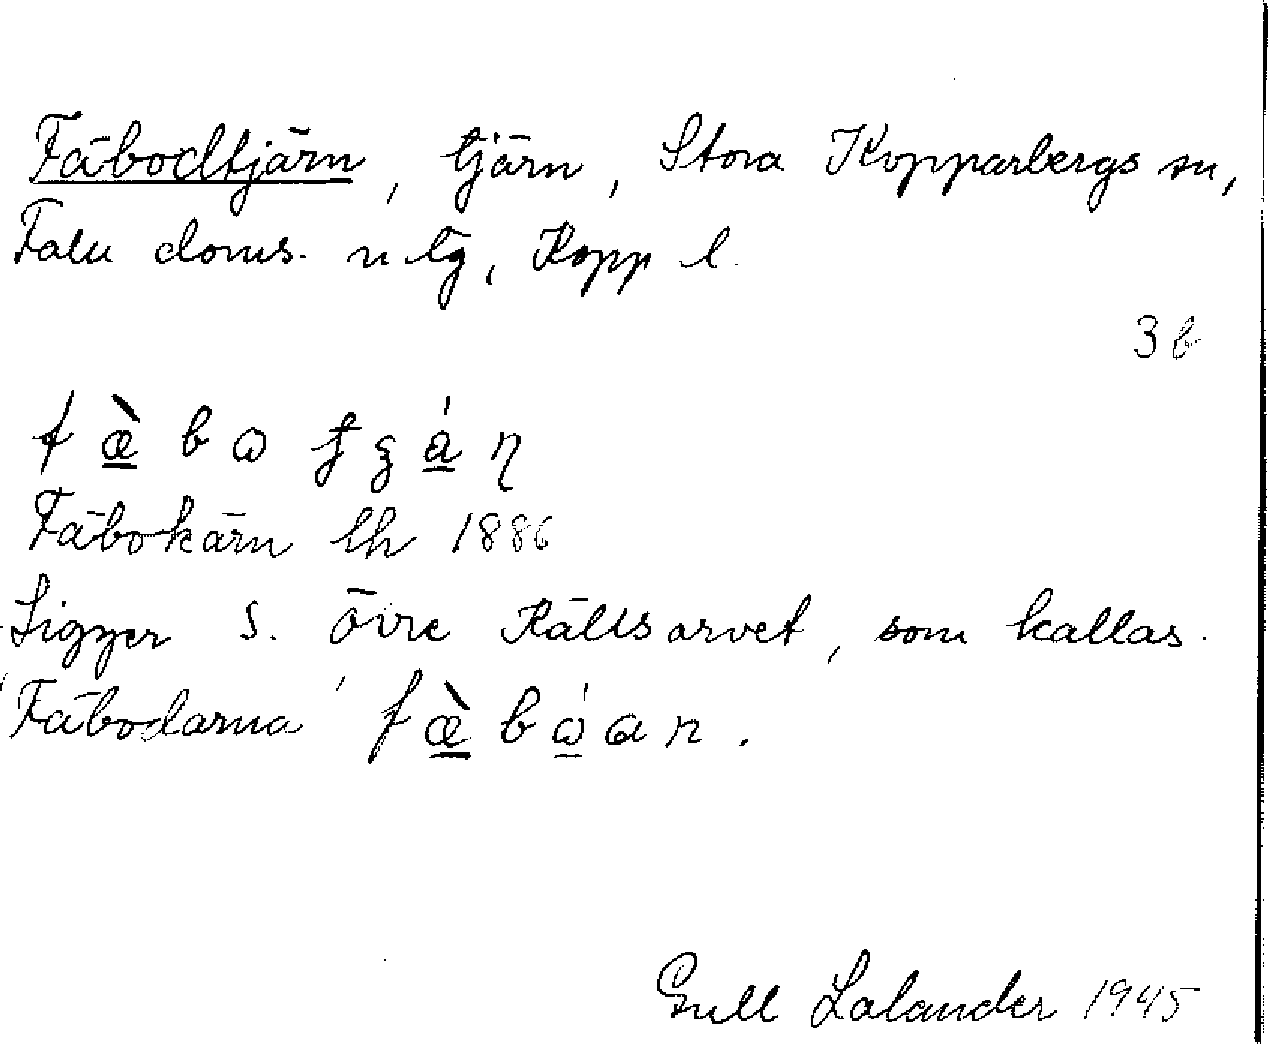 Fäbodtjärn, tjärn, Stora Kopparbergs sn,
Falu doms. n tg, Kopp l.
3 b
Fäbokärn lh 1886
Ligger S. övre Rällsarvet, som kallas
"Fäbodarna"
Gull Lalander 1945